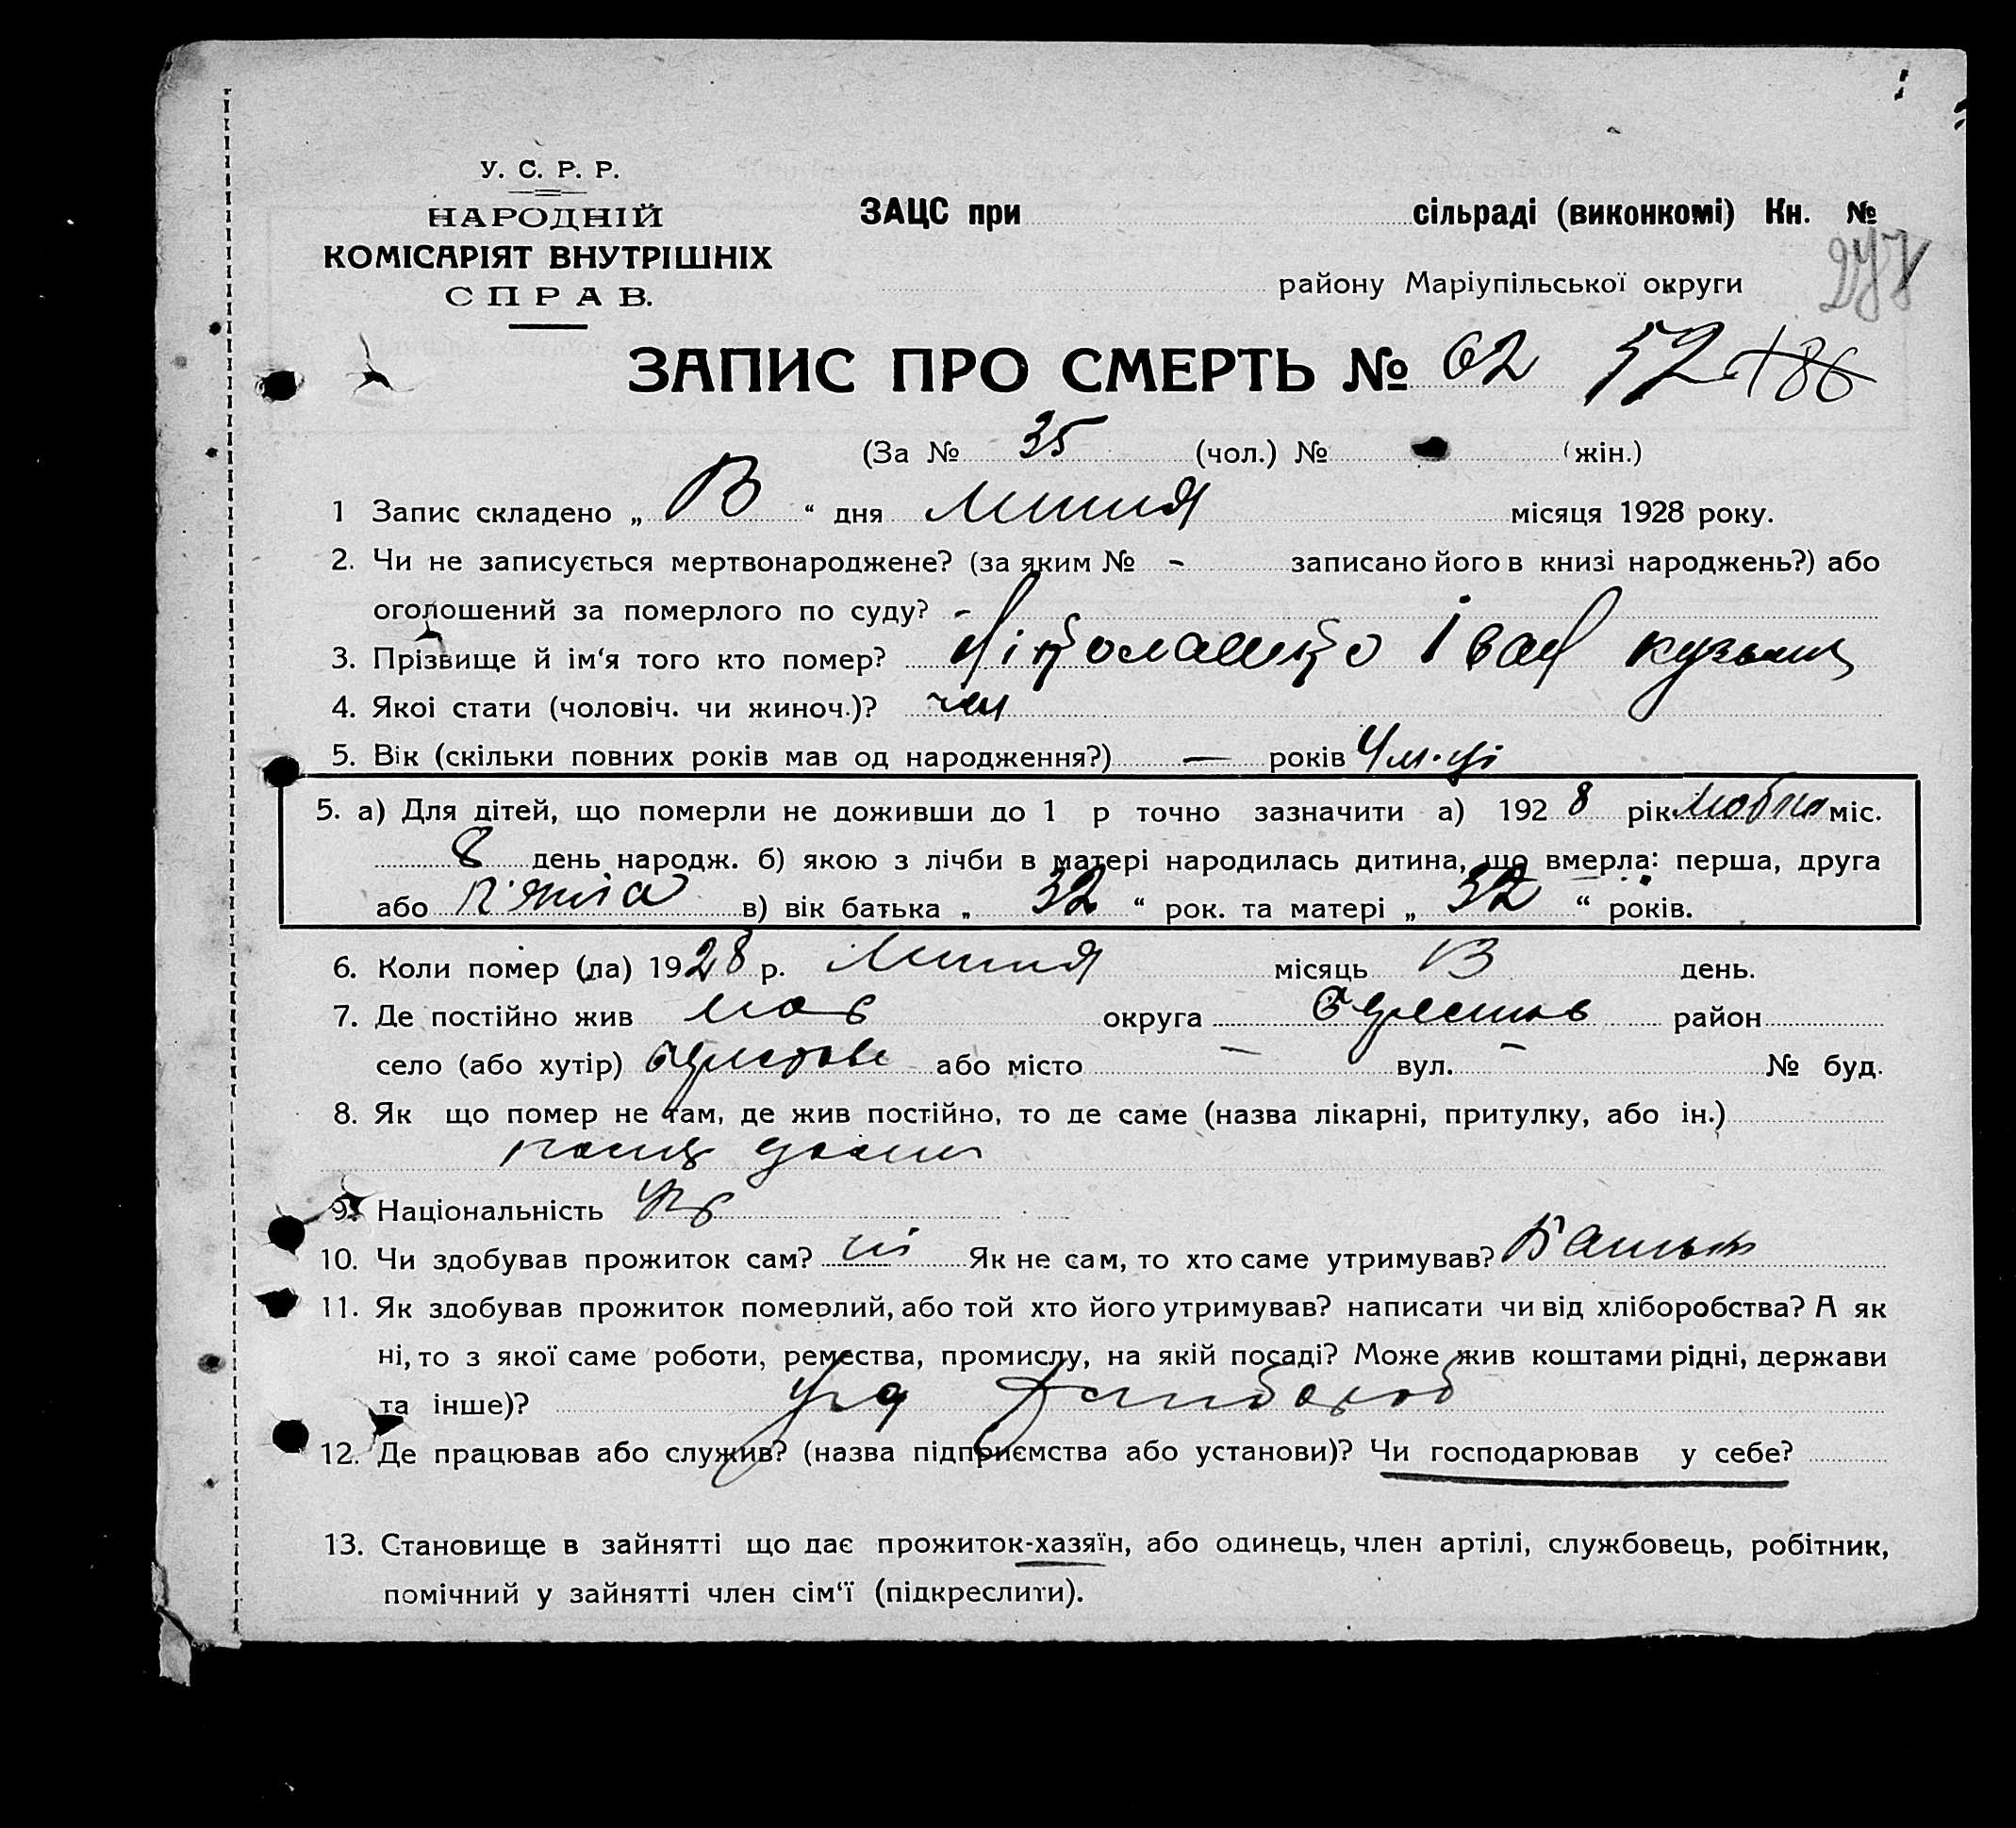 У. С. Р. Р.
НАРОДНІЙ
КОМІСАРІЯТ ВНУТРІШНІХ
СПРАВ.
ЗАЦС при сільраді (виконкомі) Кн. №
району Маріупільської округи
ЗАПИС ПРО СМЕРТЬ № 62 52 186
(За № 35 (чол.) № (жін.)
1 Запис складено „ 13 “ дня Липня місяця 1928 року.
2. Чи не записується мертвонароджене? (за яким № - записано його в книзі народжень?) або
оголошений за померлого по суду? -
3. Прізвище й ім‘я того кто помер? Ніколаенко Іван Кузьмич
4. Якої стати (чоловіч. чи жиноч.)? чол
5. Вік (скільки повних років мав од народження?) — років 4 м-ці
5. а) Для дітей, що померли не доживши до 1 р точно зазначити а) 1928 рік міс.
8 день народж. б) якою з лічби в матері народилась дитина, що вмерла: перша, друга
або п'ята в) вік батька „ 32 “ рок. та матері „ 32 “ років.
6. Коли помер (ла) 1928 р. Липня місяць 13 день.
7. Де постійно жив округа район
село (або хутір) або місто — вул. — № буд.
8. Як що помер не там, де жив постійно, то де саме (назва лікарні, притулку, або ін.)
9. Національність Укр
10. Чи здобував прожиток сам? ні Як не сам, то хто саме утримував? Батько
11. Як здобував прожиток померлий, або той хто його утримував? написати чи від хліборобства? А як
ні, то з якої саме роботи, ремества, промислу, на якій посаді? Може жив коштами рідні, держави
та інше)? Хлібороб
12. Де працював або служив? (назва підприємства або установи)? Чи господарював у себе?
13. Становище в зайнятті що дає прожиток-хазяїн, або одинець, член артілі, службовець, робітник,
помічний у зайнятті член сім‘ї (підкреслити).